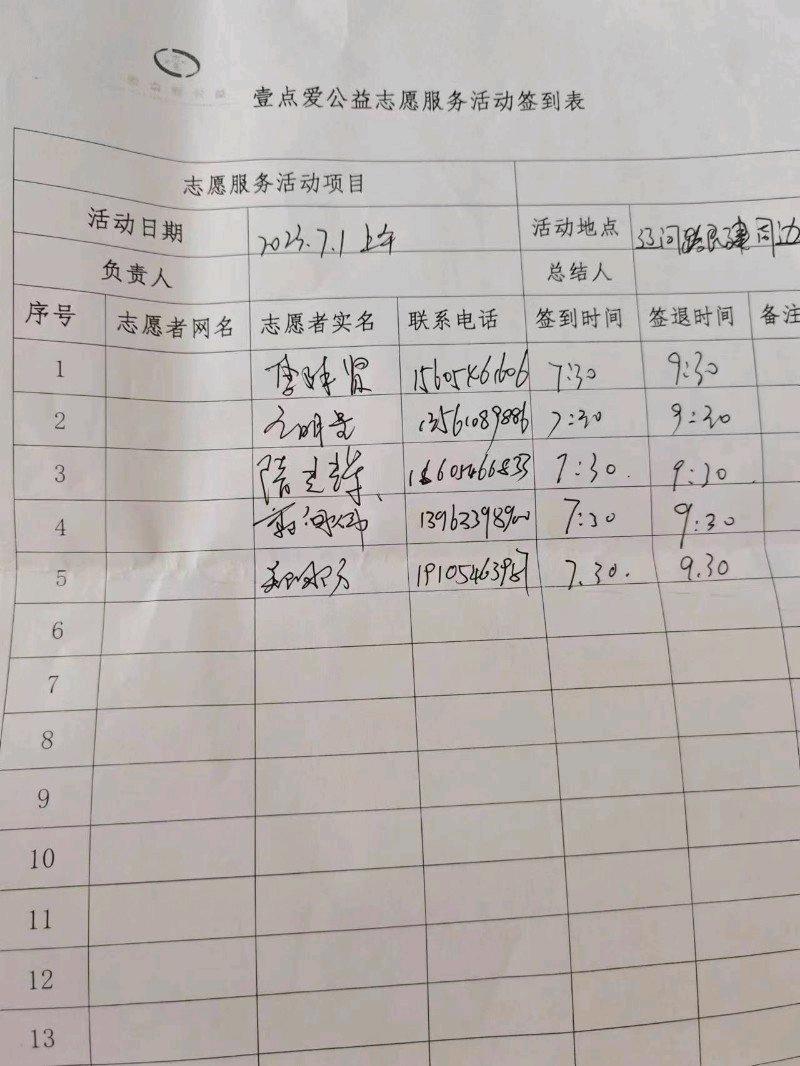 壹点爱公益志愿服务活动签到表
志愿服务活动项目
活动日期 2023.7.1 上午 活动地点 辽河路民建周边
负责人 总结人
序号 志愿者网名 志愿者实名 联系电话 签到时间 签退时间 备注
1 15605461606 7:30 9:30
2 13561089886 7:30 9:30
3 隋 7:30. 9:30.
4 13963398900 7:30 9:30
5 7.30. 9.30
6
7
8
9
10
11
12
13